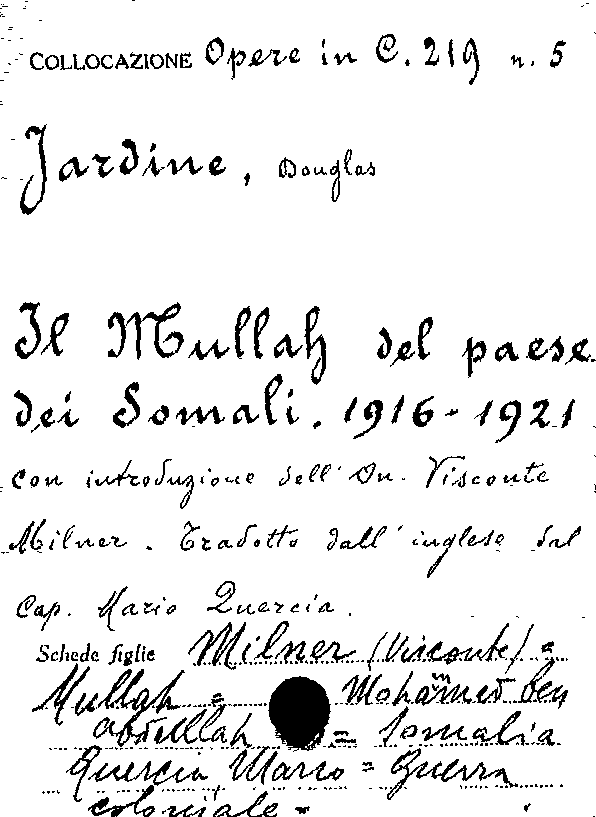 COLLOCAZIONE Opere in C. 219 n. 5
Jardine, Douglas
Il Mullah del paese
dei Somali. 1916-1921
con introduzione dell' On. Visconte
Milner. Tradotto dall' inglese dal
Cap. Mario Quercia.
Schede figlie Milner (Visconte) =
Mullah = Mohammed ben
abdullah = Somalia
Quercia, Marco = Guerra
coloniale =